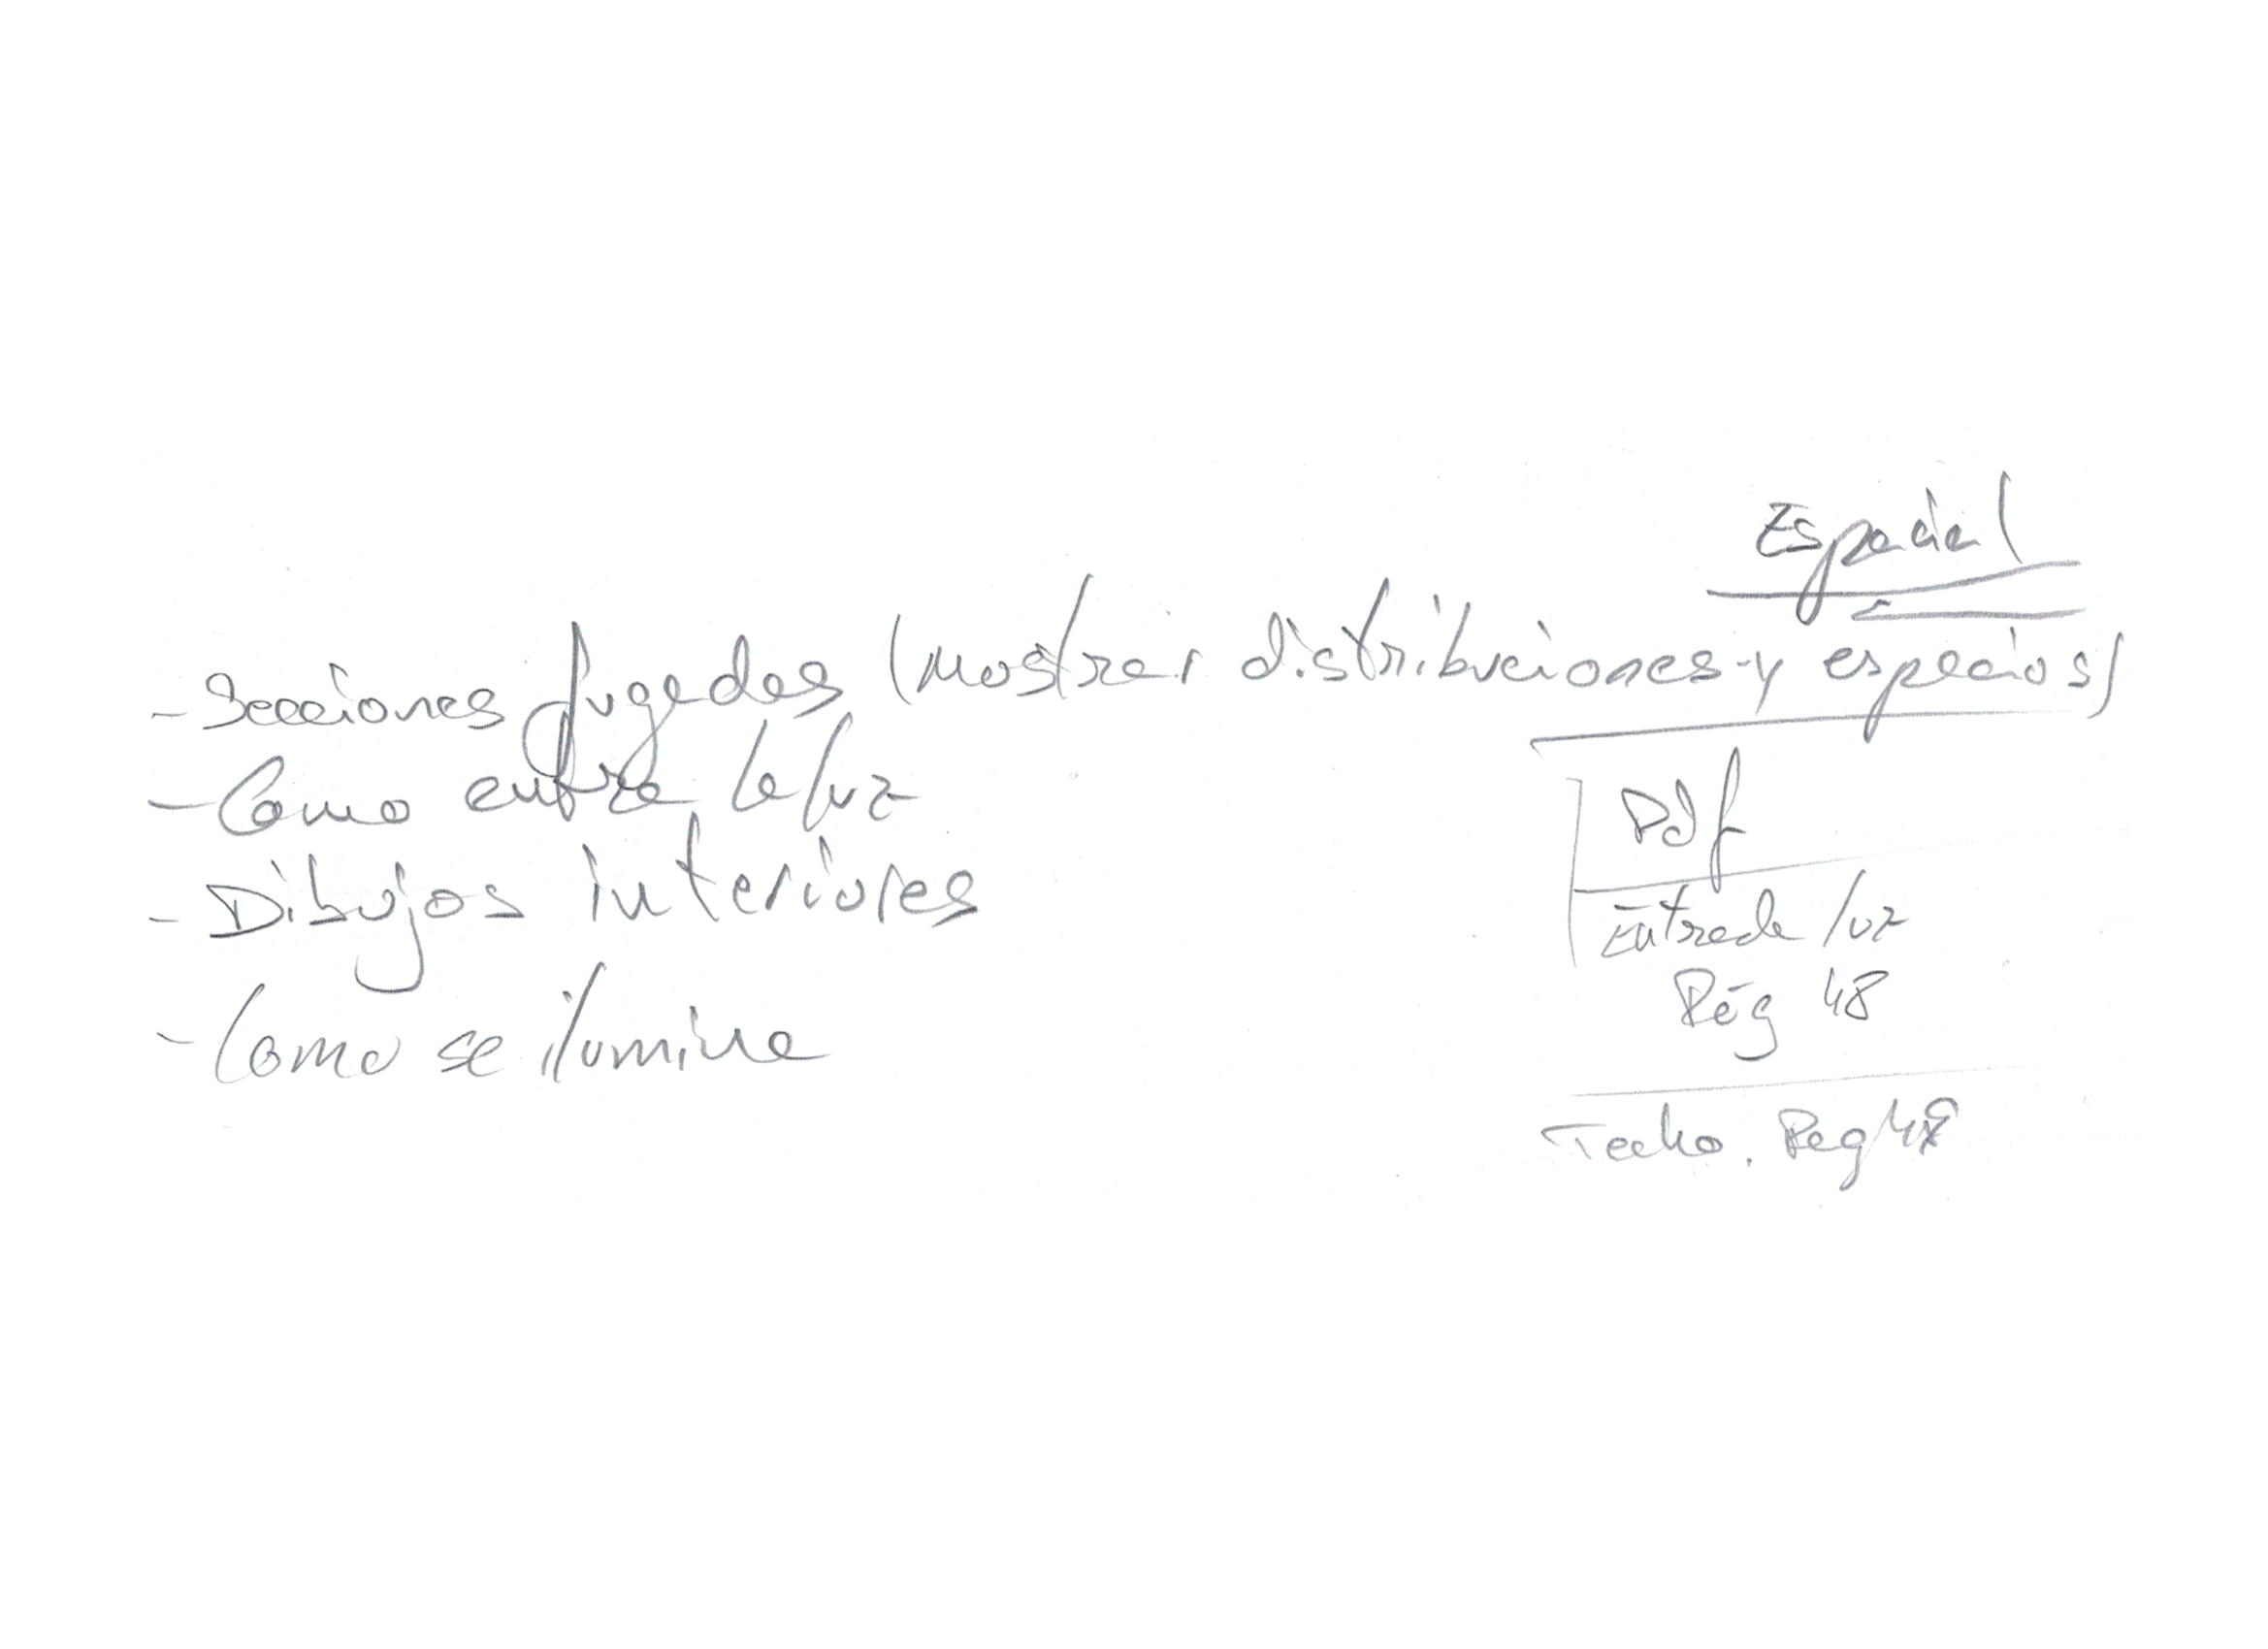 Espacial
- Secciones fugadas (mostrar distribuciones y espacios)
- Como entra la luz
- Dibujos interiores
- Como se ilumina
Pdf
Entrada luz
Pág 48
Techo. Pag 48